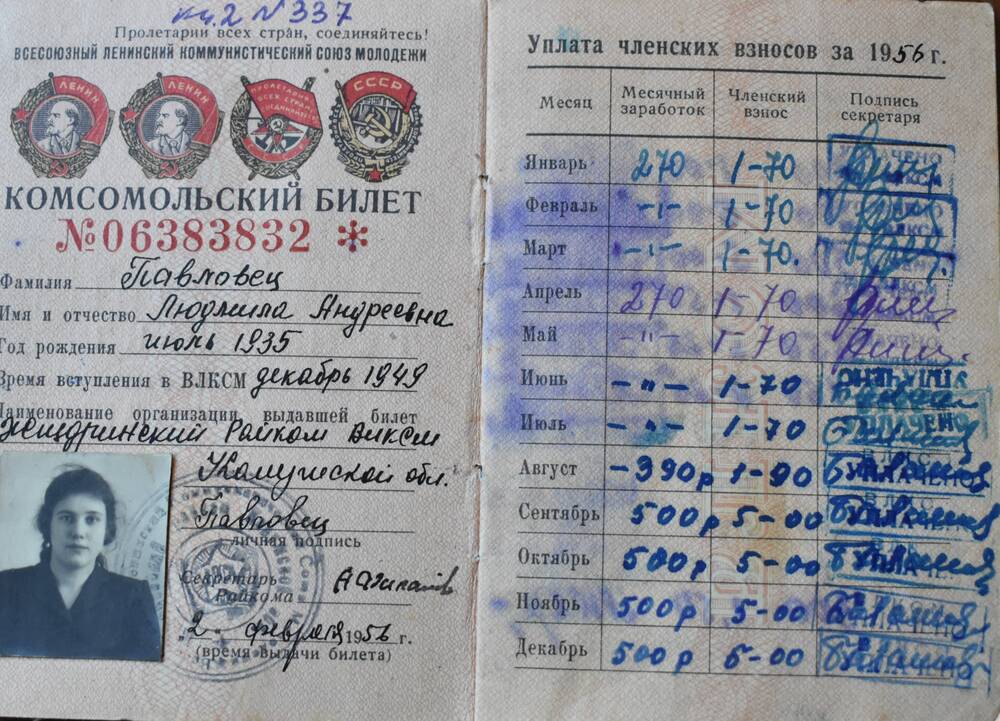 уч. 2 № 337
Пролетарии всех стран, соединяйтесь!
ВСЕСОЮЗНЫЙ ЛЕНИНСКИЙ КОММУНИСТИЧЕСКИЙ СОЮЗ МОЛОДЕЖИ
ЛЕНИН ЛЕНИН ПРОЛЕТАРИИ ВСЕХ СТРАН, СОЕДИНЯЙТЕСЬ! СССР
КОМСОМОЛЬСКИЙ БИЛЕТ
№06383832 *
Фамилия Павловец
Имя и отчество Людмила Андреевна
Год рождения июль 1935
Время вступления в ВЛКСМ декабрь 1949
Наименование организации, выдавшей билет
Жиздринский Райком ВЛКСМ
Калужской обл.
Павловец
личная подпись
Секретарь
Райкома
„2“ февраля 1956 г.
(время выдачи билета)
Уплата членских взносов за 1956 г.
Месяц Месячный заработок Членский взнос Подпись секретаря
Январь 270 1-70
Февраль -"- 1-70
Март -"- 1-70.
Апрель 270 1-70
Май -"- 1-70
Июнь -"- 1-70
Июль -"- 1-70
Август -390р 1-90
Сентябрь 500р 5-00
Октябрь 500р 5-00
Ноябрь 500р 5-00
Декабрь 500р 5-00